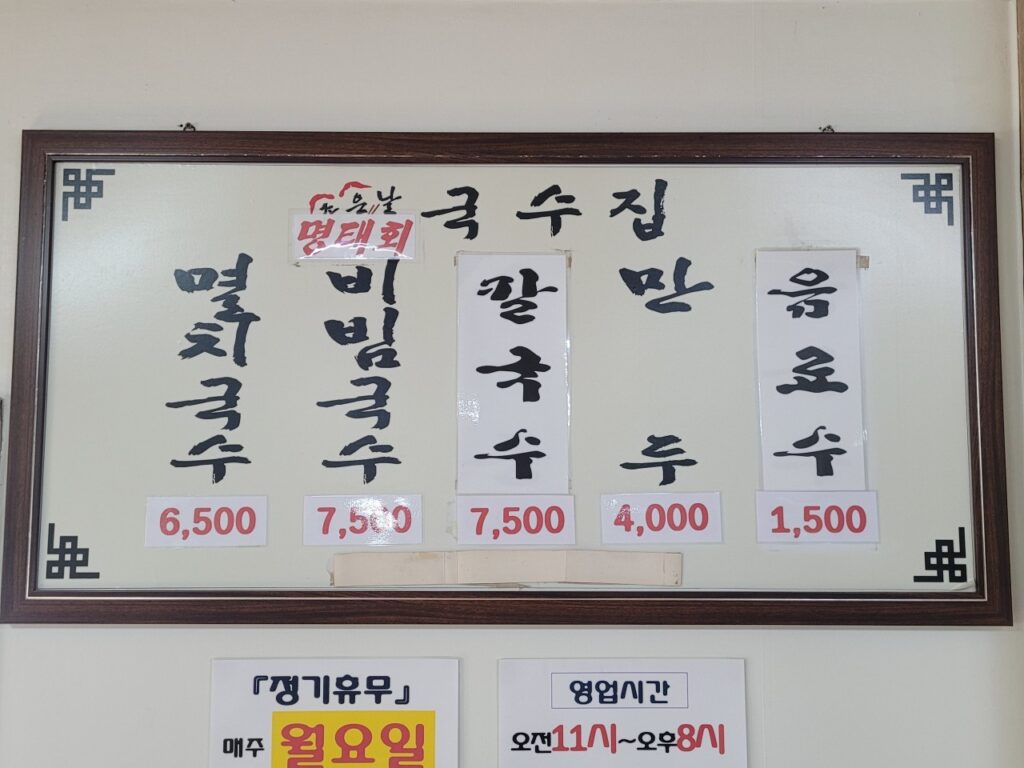 국수집
명태회
멸치국수
비빔국수
팥국수
만두
음료수
6,500
7,500
7,500
4,000
1,500
『정기휴무』
매주 월요일
영업시간
오전11시~오후8시